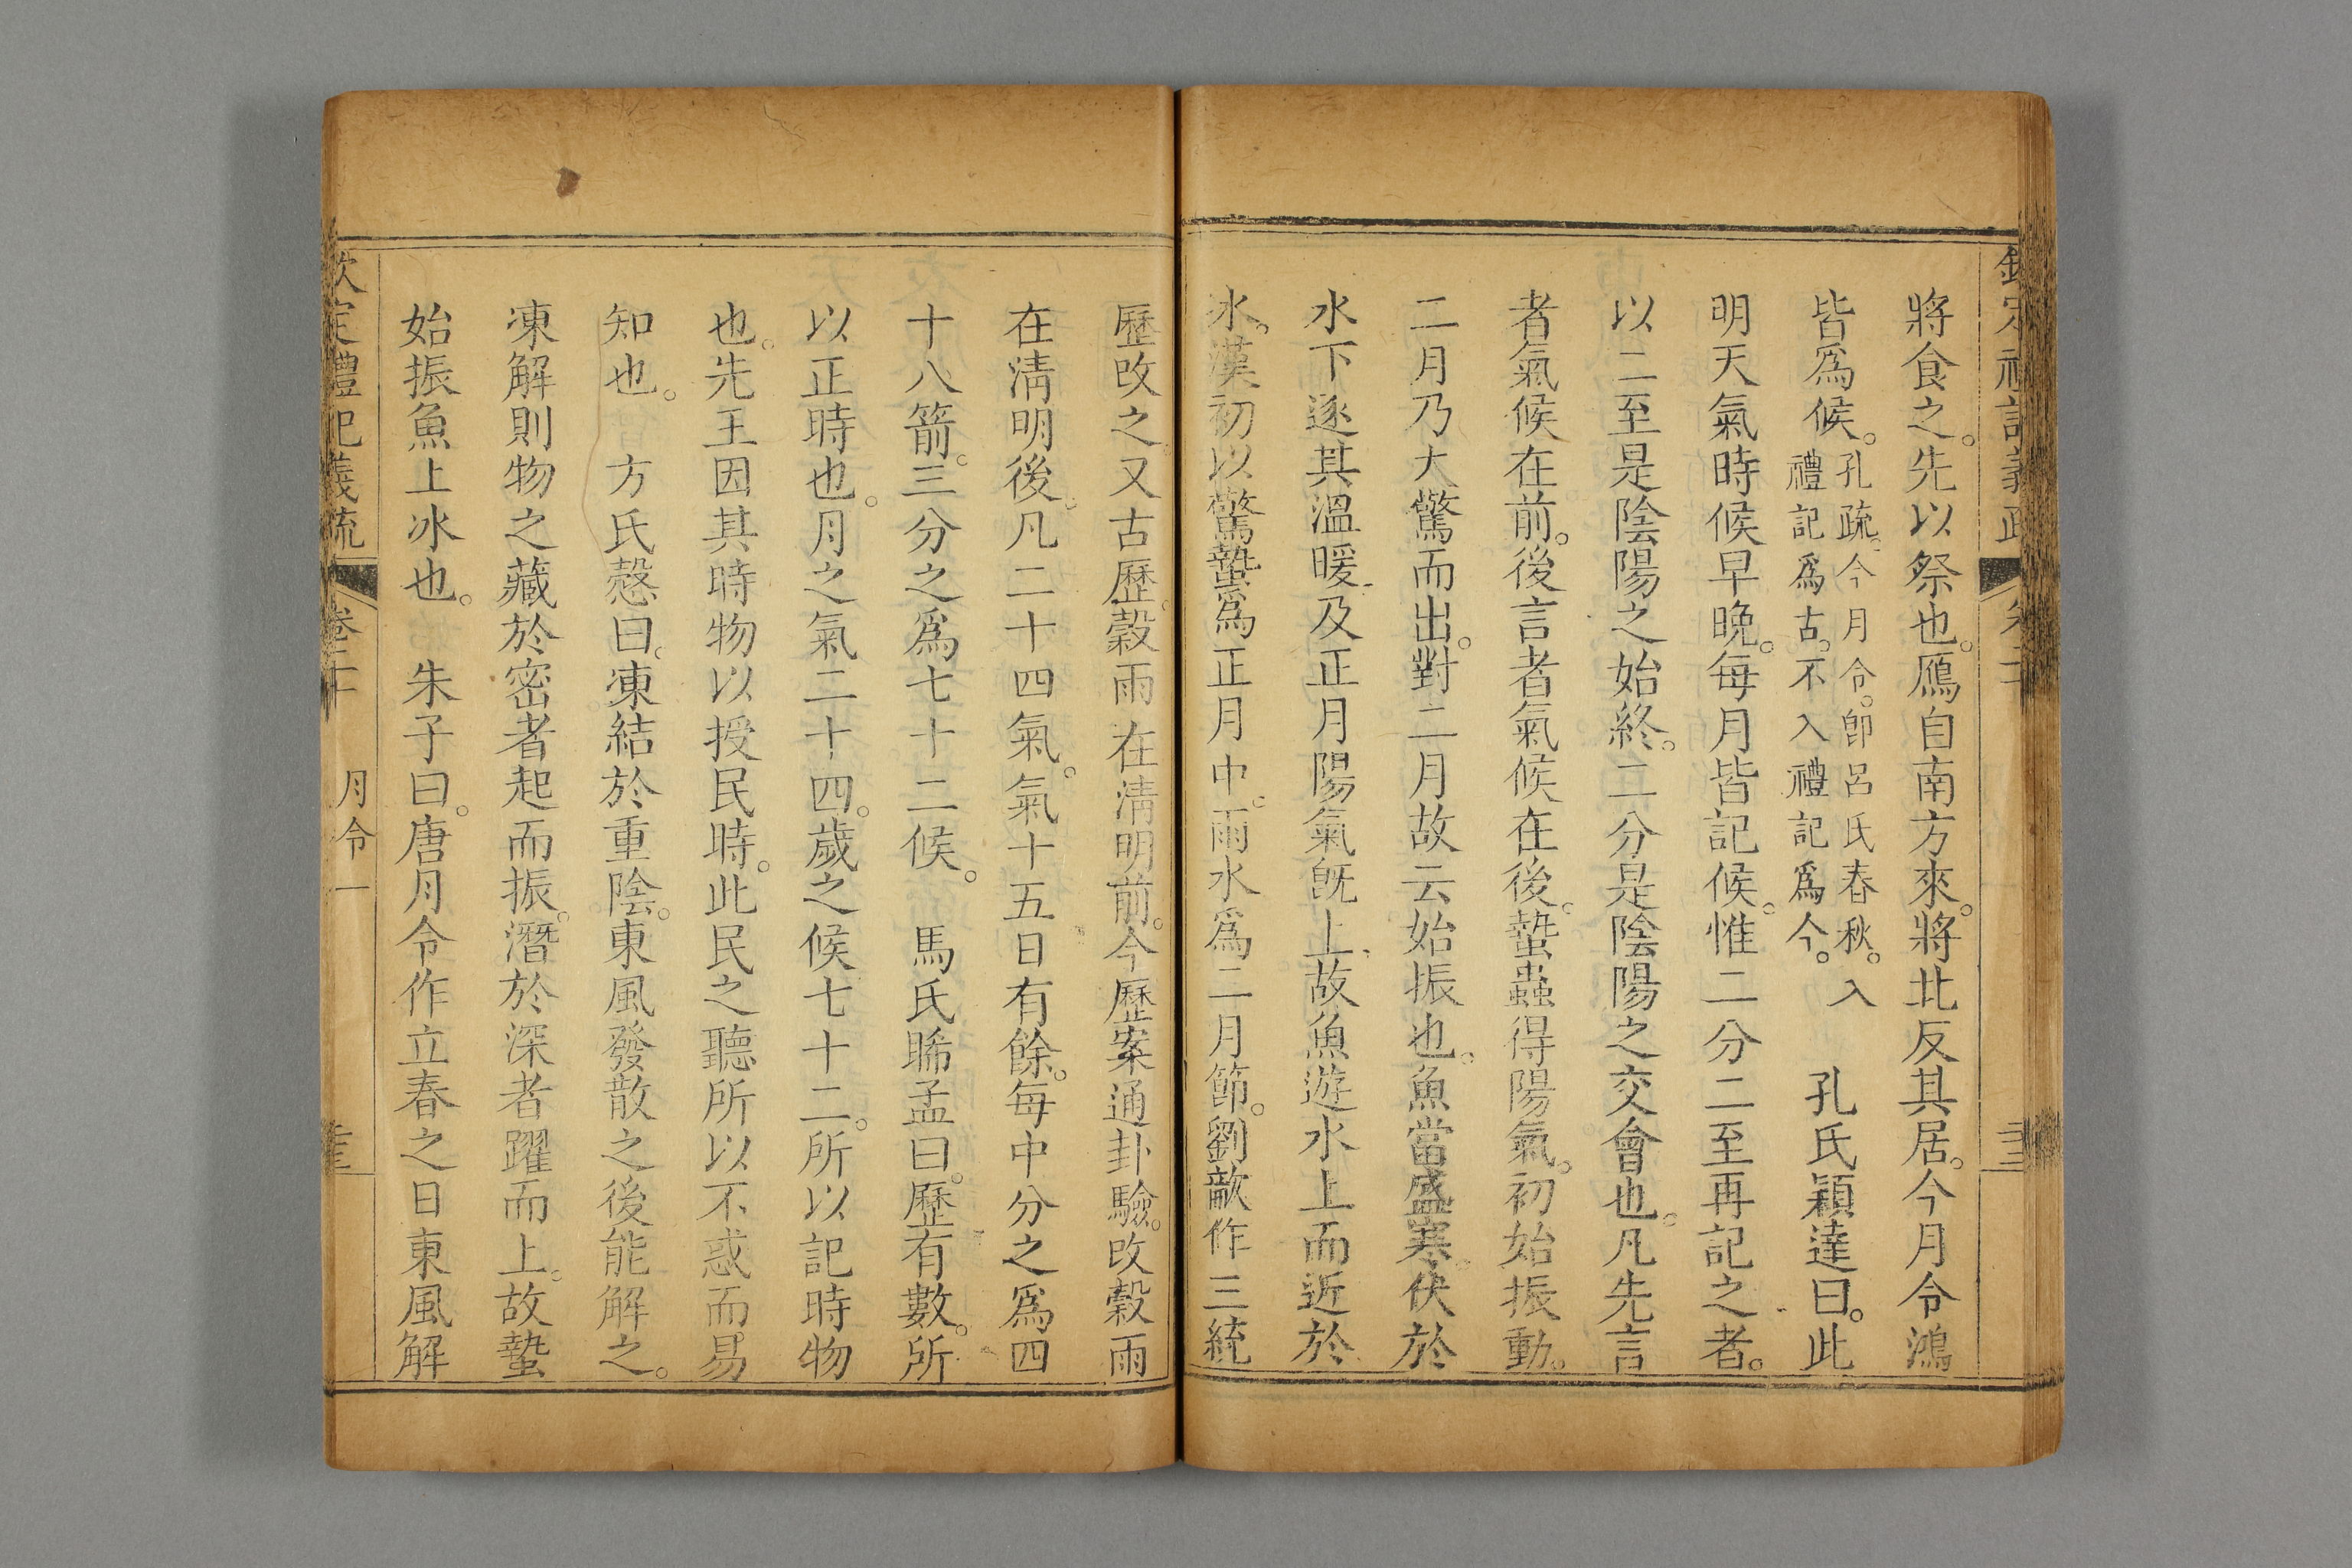 將食之。先以祭也。鴈自南方來。將北反其居。今月令鴻
皆爲候。孔疏。今月令。卽呂氏春秋。入禮記爲古。不入禮記爲今。 孔氏穎達曰。此
明天氣時候早晚。每月皆記候。惟二分二至再記之者。
以二至是陰陽之始終。二分是陰陽之交會也。凡先言
者氣候在前。後言者氣候在後。蟄蟲得陽氣。初始振動。
二月乃大驚而出。對二月故云始振也。魚當盛寒。伏於
水下逐其溫暖。及正月陽氣旣上。故魚遊水上而近於
冰。漢初以驚蟄爲正月中。雨水爲二月節。劉歆作三統
歷改之。又古歷。穀雨在淸明前。今歷案通卦驗。改穀雨
在淸明後。凡二十四氣。氣十五日有餘。每中分之爲四
十八箭。三分之爲七十二候。 馬氏晞孟曰。歷有數。所
以正時也。月之氣二十四。歲之候七十二。所以記時物
也。先王因其時物以授民時。此民之聽所以不惑而易
知也。 方氏慤曰。凍結於重陰。東風發散之後能解之。
凍解則物之藏於密者起而振。潛於深者躍而上。故蟄
始振魚上冰也。 朱子曰。唐月令作立春之日東風解
欽定禮記義疏 卷二十 月令一